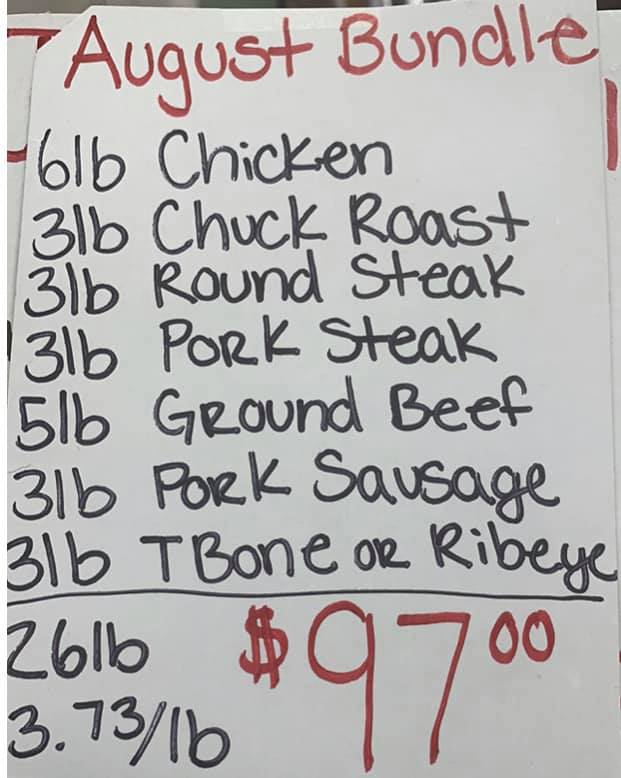 August Bundle
6lb Chicken
3lb Chuck Roast
3lb Round Steak
3lb Pork Steak
5lb Ground Beef
3lb Pork Sausage
3lb T Bone or Ribeye
26lb $97.00
3.73/lb